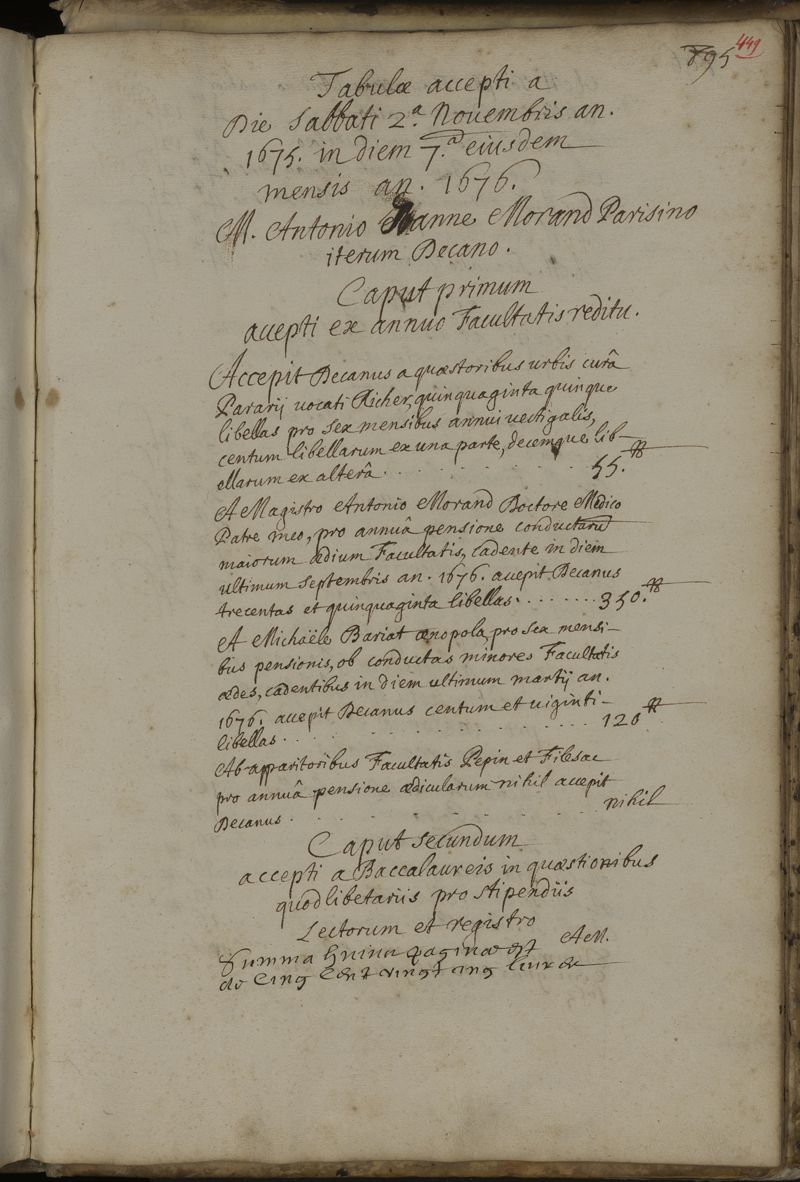 895 449
Tabulæ accepti a
Die Sabbati 2.ª Novembris an.
1675. in diem 7.ª eiusdem
mensis an. 1676.
M. Antonio Joanne Morand Parisino
iterum Decano.
Caput primum
accepti ex annuo Facultatis reditu.
Accepit Decanus a quæstoribus urbis curâ
Pararij vocati Richer, quinquaginta quinque
libellas pro sex mensibus annui vectigalis,
centum libellarum ex una parte, decemque lib-
ellarum ex alterâ . . . . . . . . 55.₶
A Magistro Antonio Morand Doctore Medico
Patre meo, pro annuâ pensione conductarū
maiorum ædium Facultatis, cadente in diem
ultimum septembris an. 1676. accepit Decanus
trecentas et quinquaginta libellas . . . . . . . 350.₶
A Michaële Bariat œnopola, pro sex mensi-
bus pensionis, ob conductas minores Facultatis
ædes, cadentibus in diem ultimum martij an.
1676. accepit Decanus centum et viginti-
libellas . . . . . . . . . . 120 ₶
Ab apparitoribus Facultatis Pepin et Filesac
pro annuâ pensione ædicularum nihil accepit
Decanus . . . . . . . . . nihil
Caput secundum
accepti a Baccalaureis in quæstionibus
quodlibetariis pro stipendiis
Lectorum et registro
Summa huius paginæ est A M.
de Cinq Cent vingt cinq livres